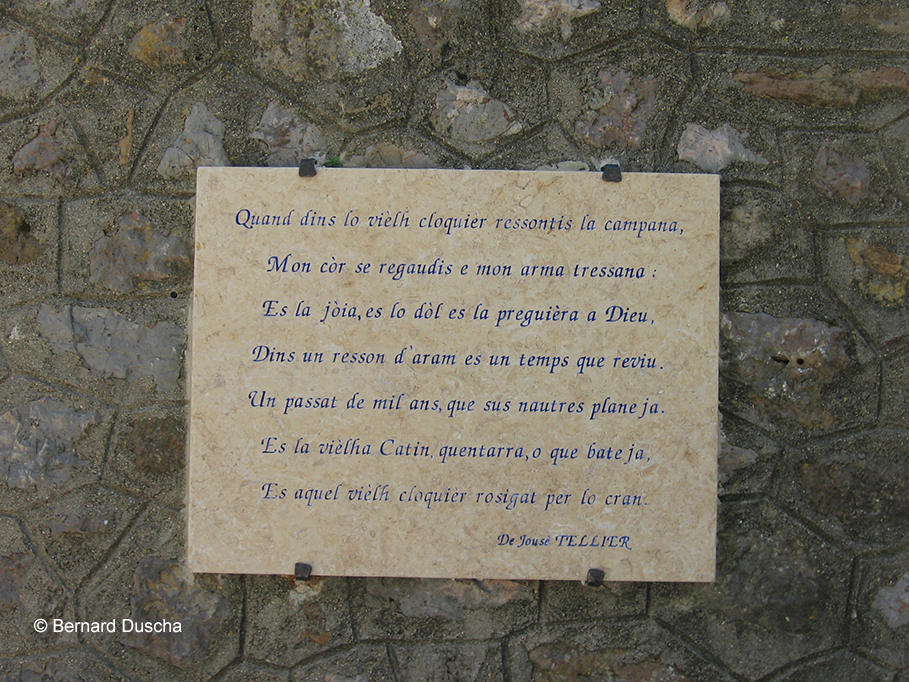 Quand dins lo vièlh cloquier ressontis la campana,
Mon còr se regaudis e mon arma tressana :
Es la jòia, es lo dòl es la preguièra a Dieu,
Dins un resson d'aram es un temps que reviu.
Un passat de mil ans, que sus nautres planeja.
Es la vièlha Catin, quentarra, o que bateja,
Es aquel vièlh cloquièr rosigat per lo cran.
De Jousè TELLIER
© Bernard Duscha